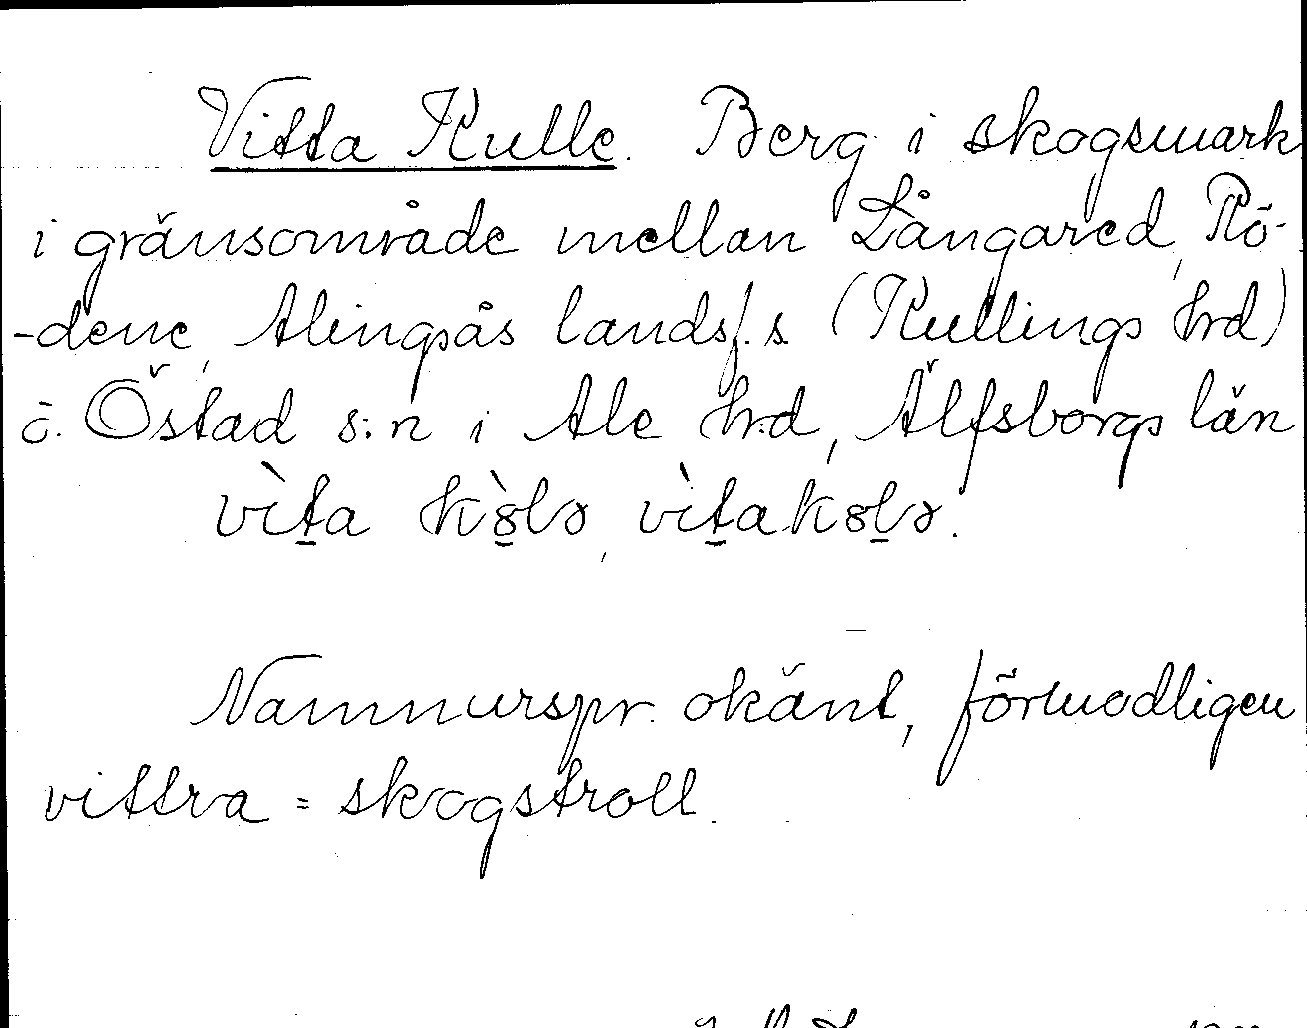 Vitta Kulle. Berg i skogsmark
i gränsområde mellan Långared, Rö-
-dene, Alingsås landsf.s (Kullings hrd)
o. Östad s:n i Ale hrd, Älfsborgs län
Namnurspr. okänt, förmodligen
vittra = skogstroll.